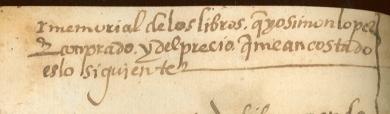 memorial de los libros. q̃ yo simon lopez
conprado. y del precio. q̃ me an costado
es lo siguiente